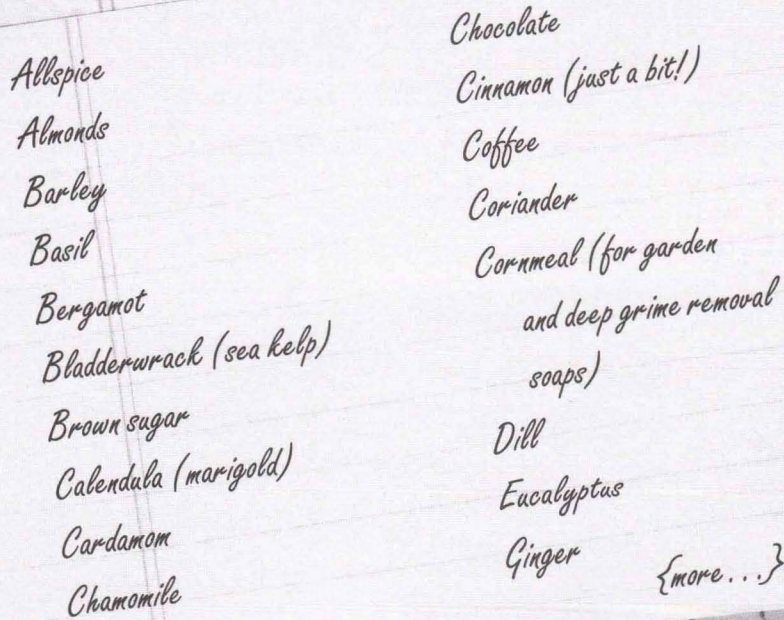 Allspice
Almonds
Barley
Basil
Bergamot
Bladderwrack (sea kelp)
Brown sugar
Calendula (marigold)
Cardamom
Chamomile
Chocolate
Cinnamon (just a bit!)
Coffee
Coriander
Cornmeal (for garden
and deep grime removal
soaps)
Dill
Eucalyptus
Ginger
{more...}